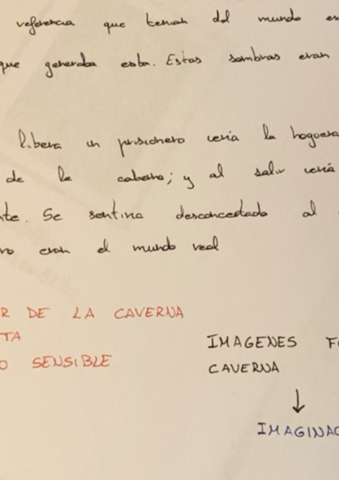 referencia que tenian del mundo
que generaba esta. Estas sombras eran
libera un prisionero veria la hoguera
de la caberna; y al salir veria
nte. Se sentiria desconcertado al
ro eran el mundo real
R DE LA CAVERNA
TA
O SENSIBLE
IMAGENES F
CAVERNA
↓
IMAGINAC